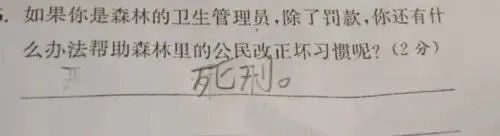 . 如果你是森林的卫生管理员,除了罚款,你还有什
么办法帮助森林里的公民改正坏习惯呢?(2 分)
死刑。